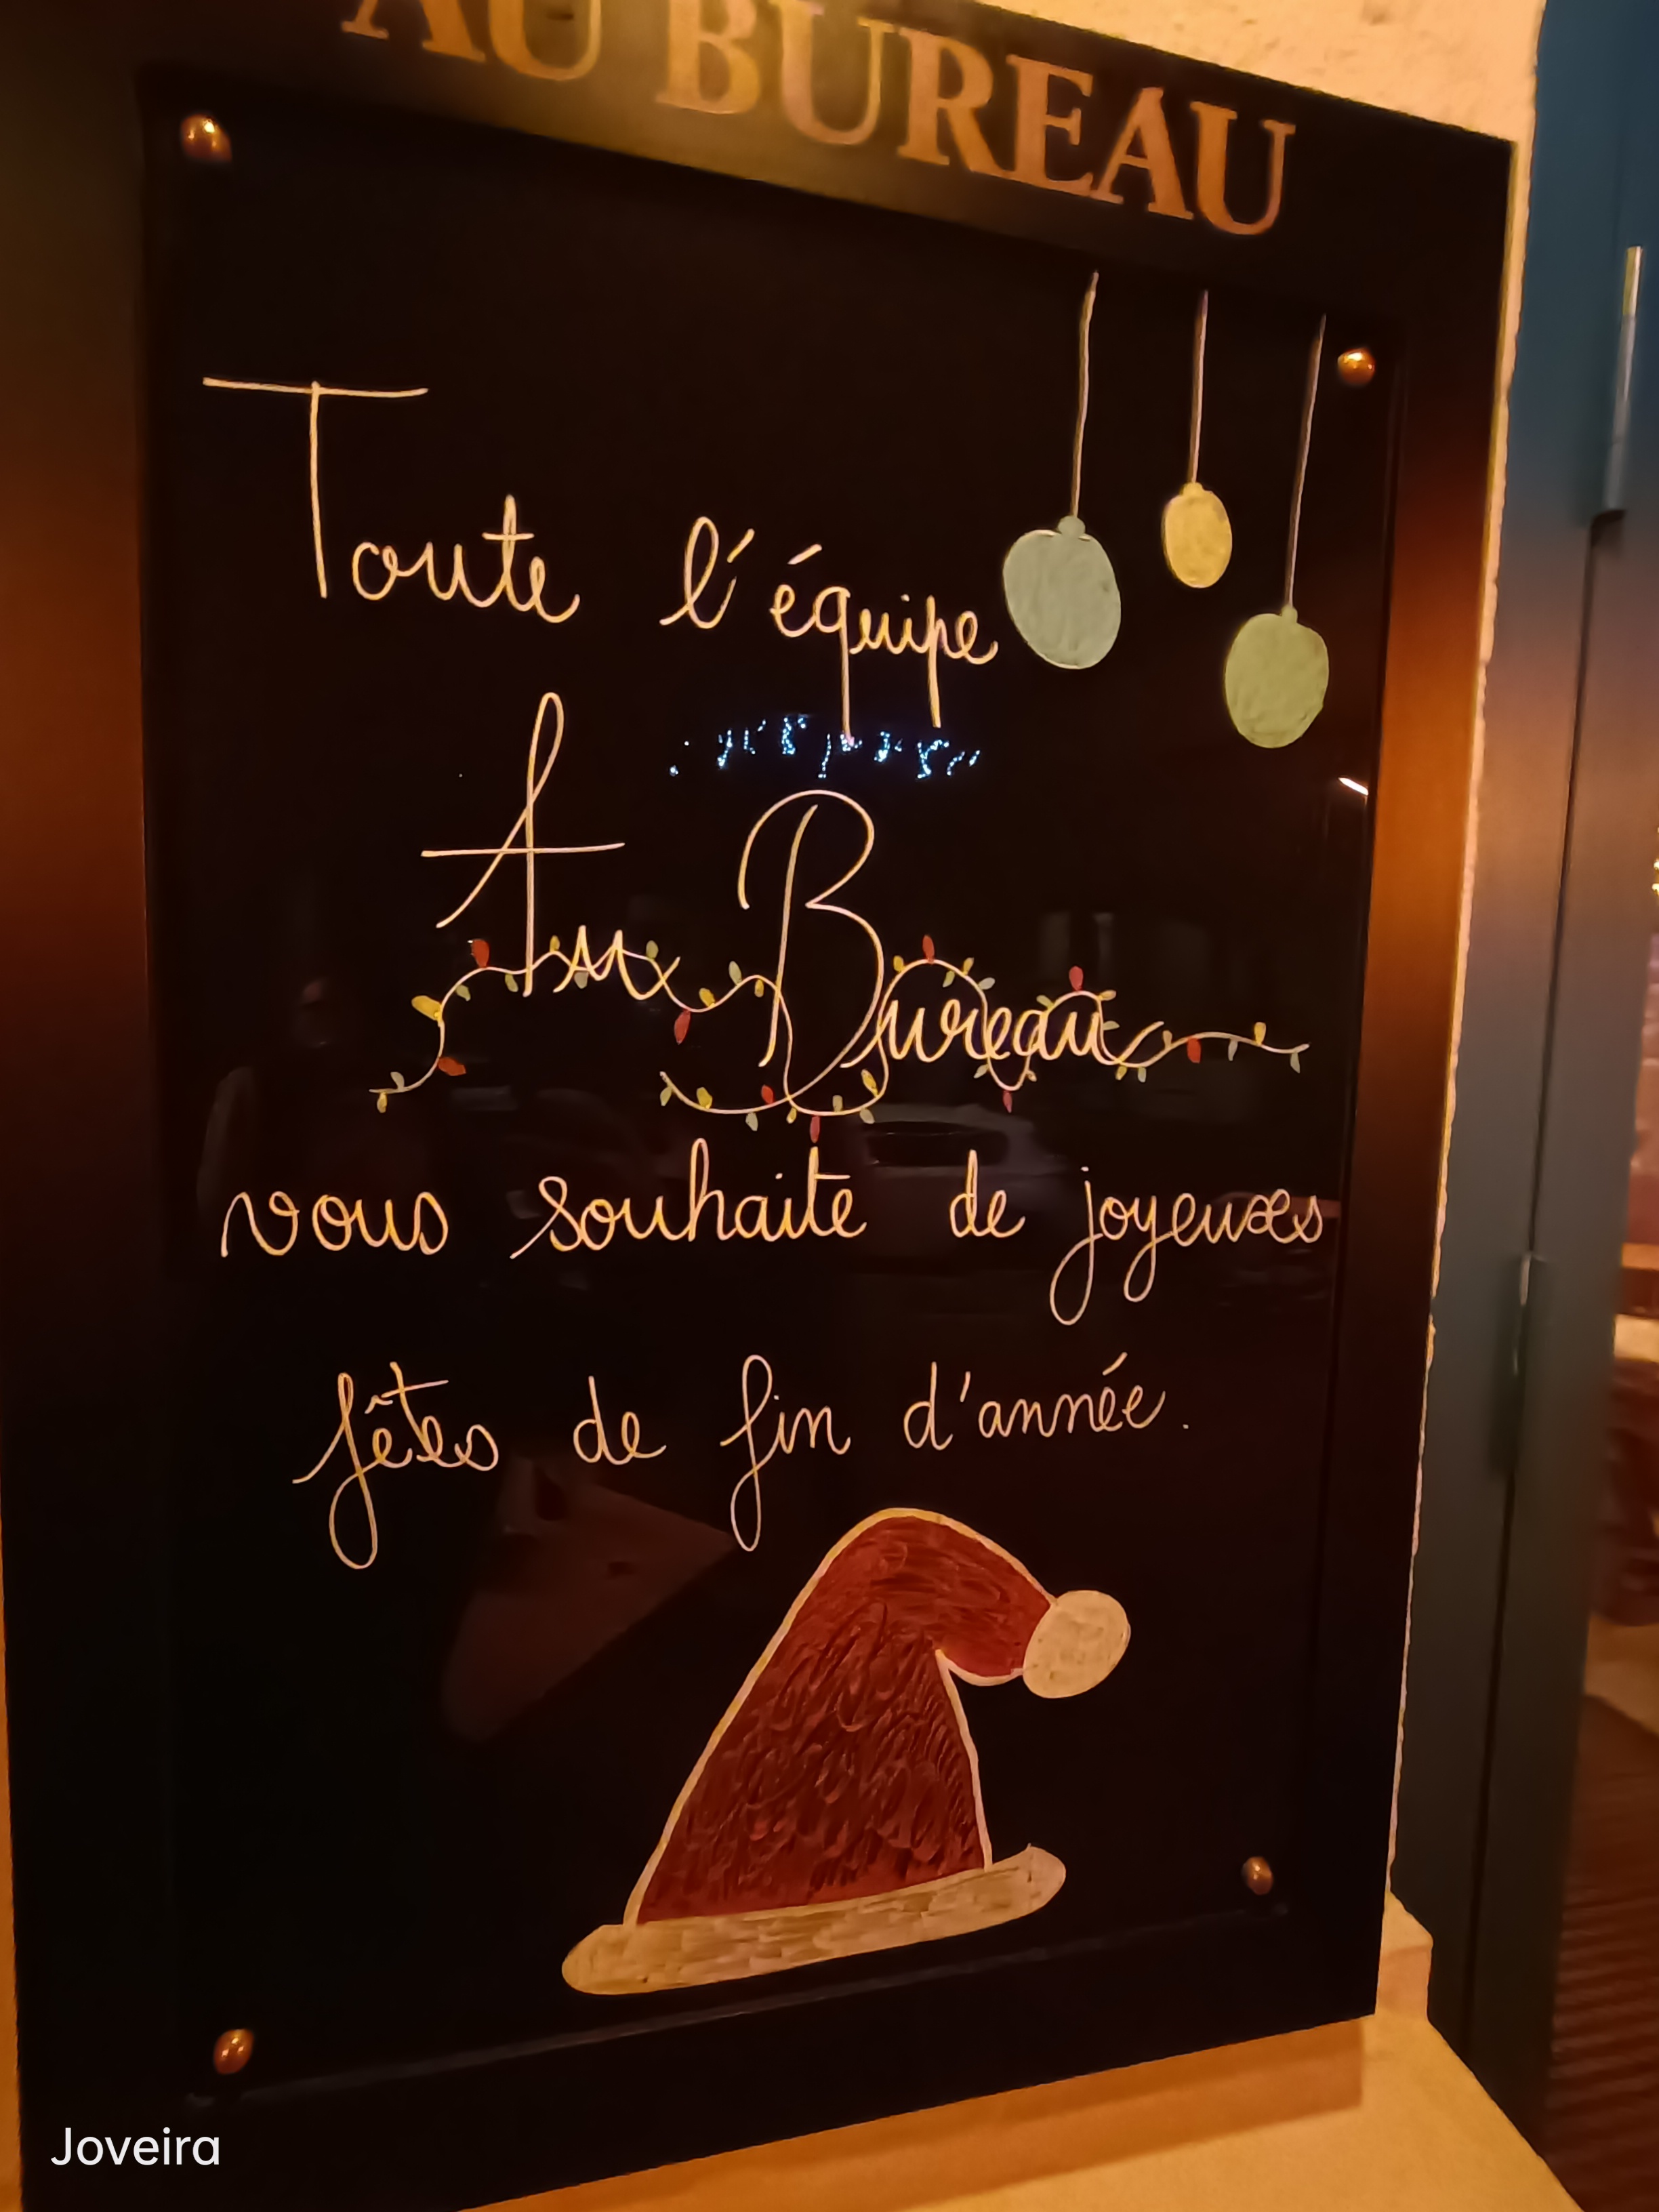 AU BUREAU
Toute l'équipe
Au Bureau
vous souhaite de joyeuses
fêtes de fin d'année.
Joveira